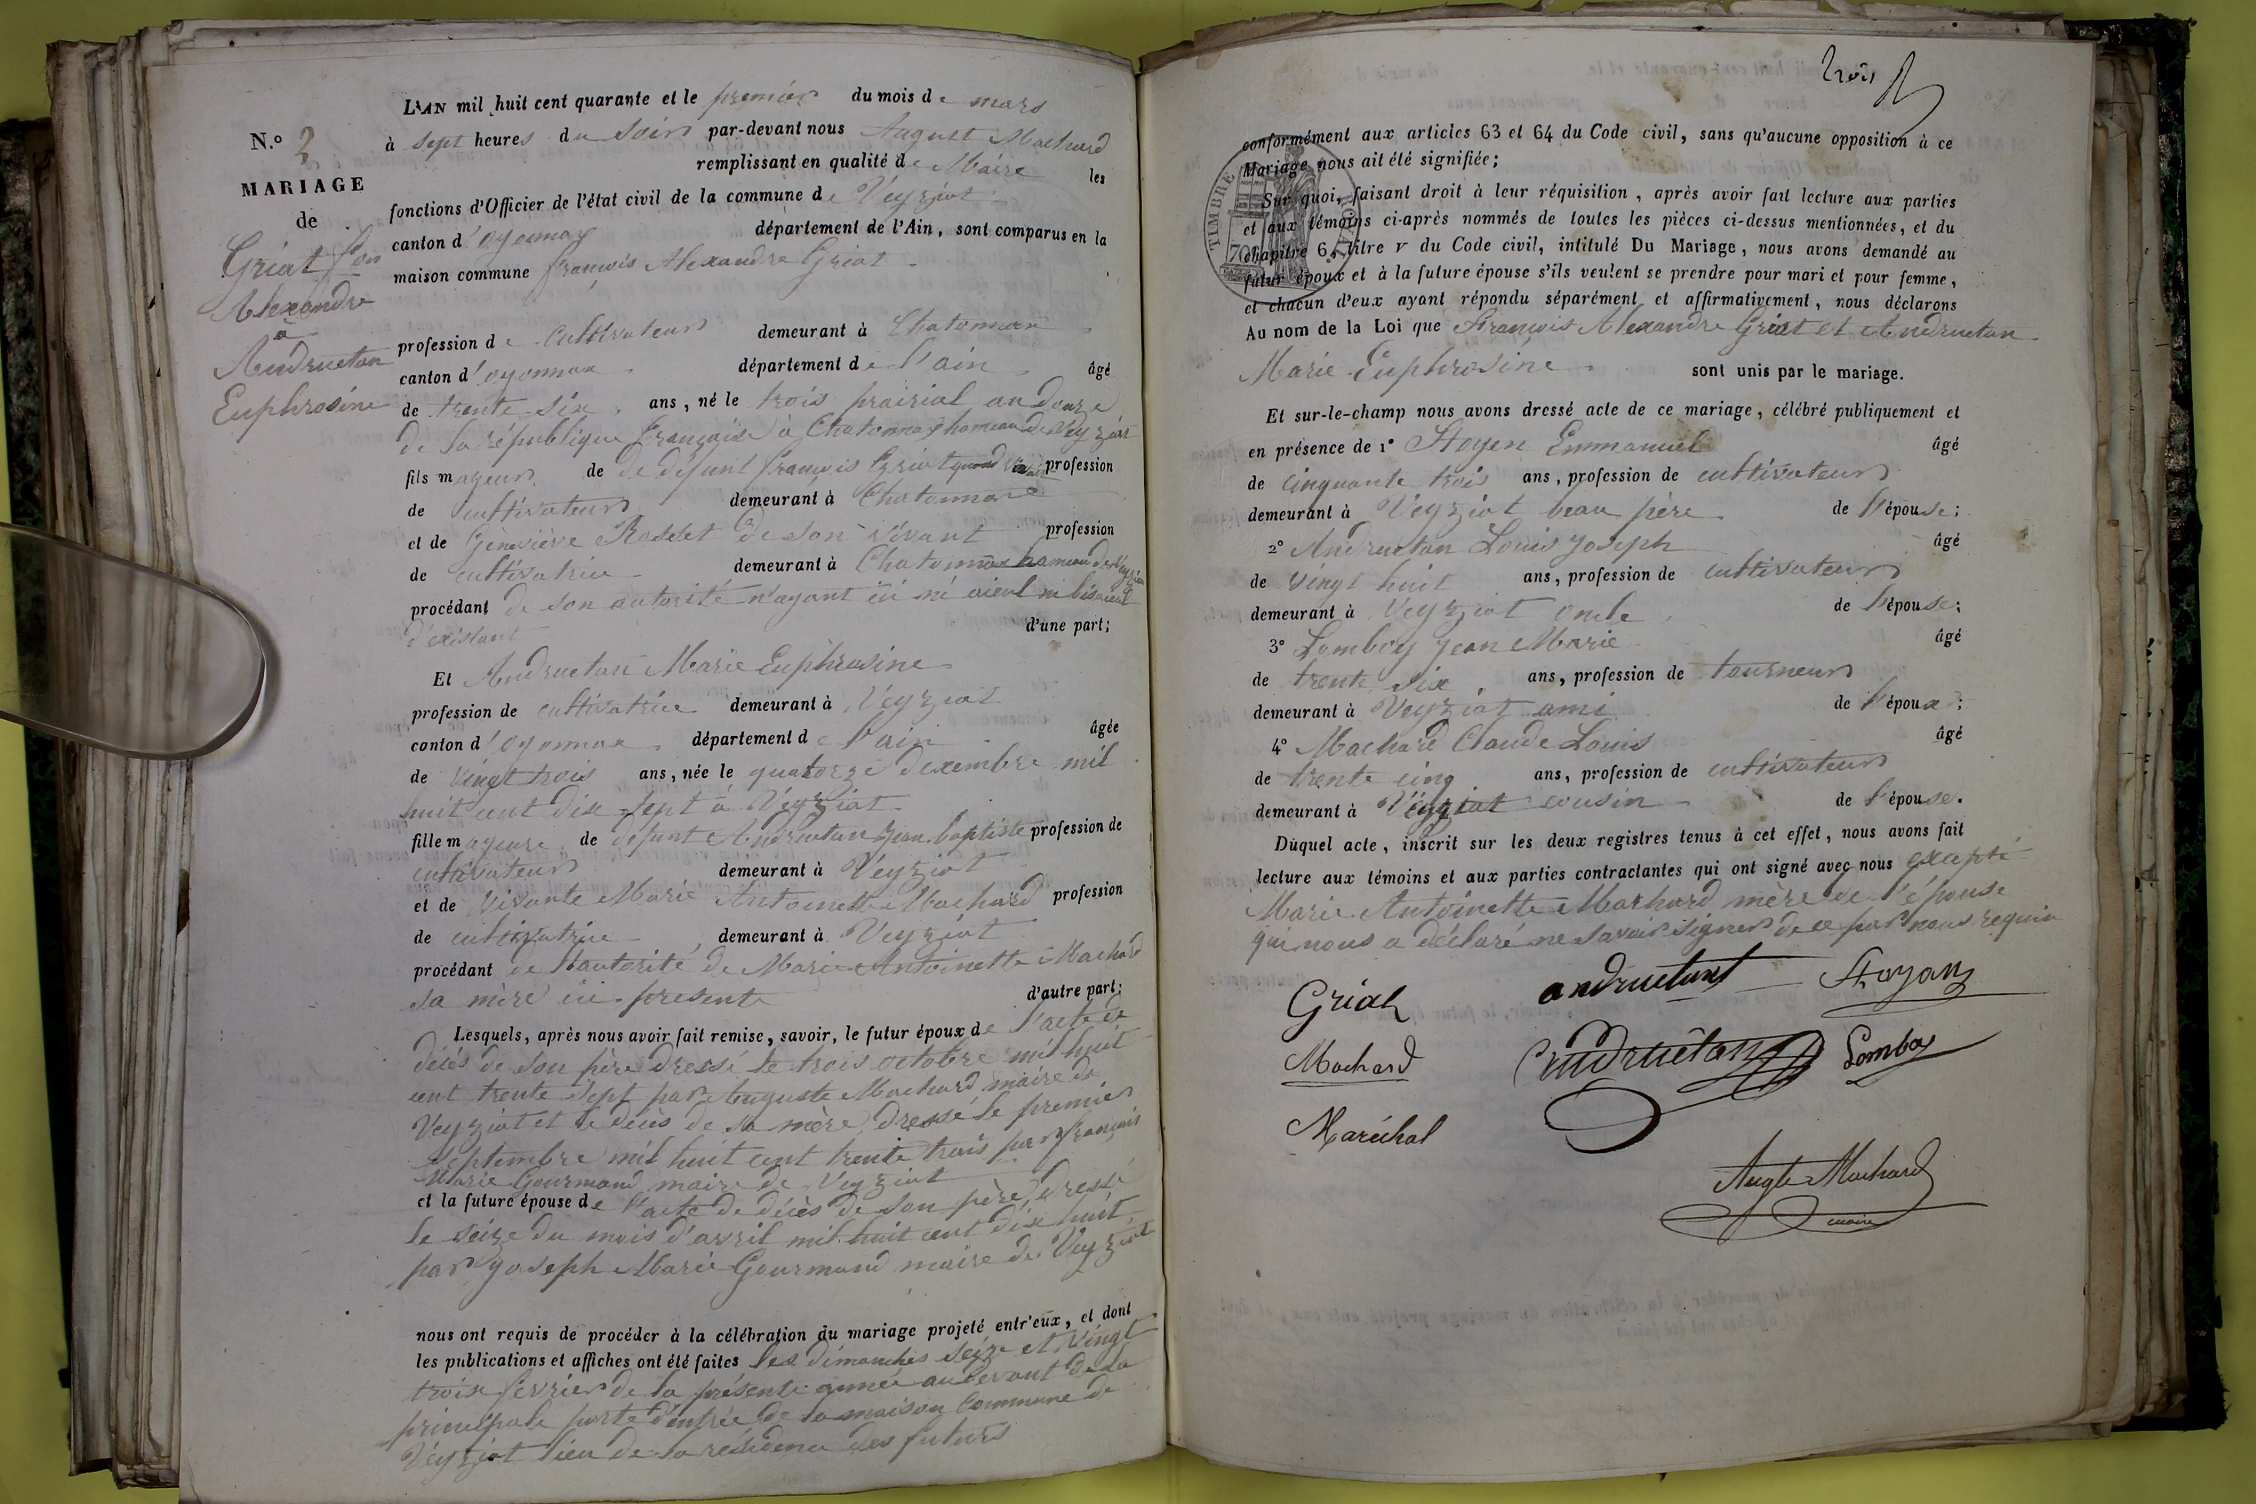 L'AN mil huit cent quarante et le premier du mois de mars
à sept heures du Soir par-devant nous August Machard
remplissant en qualité de Maire les
fonctions d'Officier de l'état civil de la commune de Veyziat
canton d'oyonnax département de l'Ain, sont comparus en la
maison commune françois Alexandre Griat
profession de Cultivateur demeurant à Chatonnax
canton d'oyonnax département de l'ain âgé
de trente six ans, né le trois prairial an douze
de la république française à Chatonnax hameau de Veyziat
fils mageur de de défunt françois Griat quand vivait profession
de cultivateur demeurant à Chatonnax
et de Geneviève Rosset de son vivant profession
de cultivatrice demeurant à Chatonnax hameau de Veyziat
procédant de son autorité n'ayant ni aieul ni bisaieul
d'existant d'une part;
Et Andruetan Marie Euphrosine
profession de cultivatrice demeurant à Veyziat
canton d'oyonnax département de l'ain âgée
de vingt trois ans, née le quatorze decembre mil
huit cent dix-sept à Veyziat
fille mageure de défunt Andruetan Jean baptiste profession de
cultivateur demeurant à Veyziat
et de vivante Marie Antoinette Machard profession
de cultivatrice demeurant à Veyziat
procédant de l'autorité de Marie Antoinette Machard
sa mère ici presente d'autre part;
Lesquels, après nous avoir fait remise, savoir, le futur époux de l'acte de
décès de son père dressé le trois octobre mil huit
cent trente sept par Auguste Machard maire de
Veyziat et le décès de sa mère dressé le premier
septembre mil huit cent trente trois par françois
Marie Gourmand maire de Veyziat
et la future épouse de l'acte de décès de son père, dressé
le seize du mois d'avril mil huit cent dix huit
par Joseph Marie Gourmand maire de Veyziat
nous ont requis de procéder à la célébration du mariage projeté entr'eux, et dont
les publications et affiches ont été faites les dimanches seize et vingt
trois fevrier de la présente année au devant de la
principale porte d'entrée de la maison Commune de
Veyziat lieu de la résidence des futurs
N.° 3
MARIAGE
de
Griat f.ois
Alexandre
à
Andruetan
Euphrosine
trois
conformément aux articles 63 et 64 du Code civil, sans qu'aucune opposition à ce
Mariage nous ait été signifiée;
Sur quoi, faisant droit à leur réquisition, après avoir fait lecture aux parties
et aux témoins ci-après nommés de toutes les pièces ci-dessus mentionnées, et du
chapitre 6, titre v du Code civil, intitulé Du Mariage, nous avons demandé au
futur époux et à la future épouse s'ils veulent se prendre pour mari et pour femme,
et chacun d'eux ayant répondu séparément et affirmativement, nous déclarons
Au nom de la Loi que françois Alexandre Griat et Andruetan
Marie Euphrosine sont unis par le mariage.
Et sur-le-champ nous avons dressé acte de ce mariage, célébré publiquement et
en présence de 1° Stoyen Emmanuel âgé
de cinquante trois ans, profession de cultivateur
demeurant à Veyziat beau père de l'épouse;
2° Andruetan Louis Joseph âgé
de vingt huit ans, profession de cultivateur
demeurant à Veyziat oncle de l'épouse;
3° Lomboy Jean Marie âgé
de trente six ans, profession de tourneur
demeurant à Veyziat ami de l'époux;
4° Machard Claude Louis âgé
de trente cinq ans, profession de cultivateur
demeurant à Veyziat cousin de l'épouse.
Duquel acte, inscrit sur les deux registres tenus à cet effet, nous avons fait
lecture aux témoins et aux parties contractantes qui ont signé avec nous excepté
Marie Antoinette Machard mère de l'épouse
qui nous a déclaré ne savoir signer de ce par nous requise
Griat andruetant Stoyan
Machard Andruétan Lomboy
Maréchal
Augte Machard
maire
TIMBRE